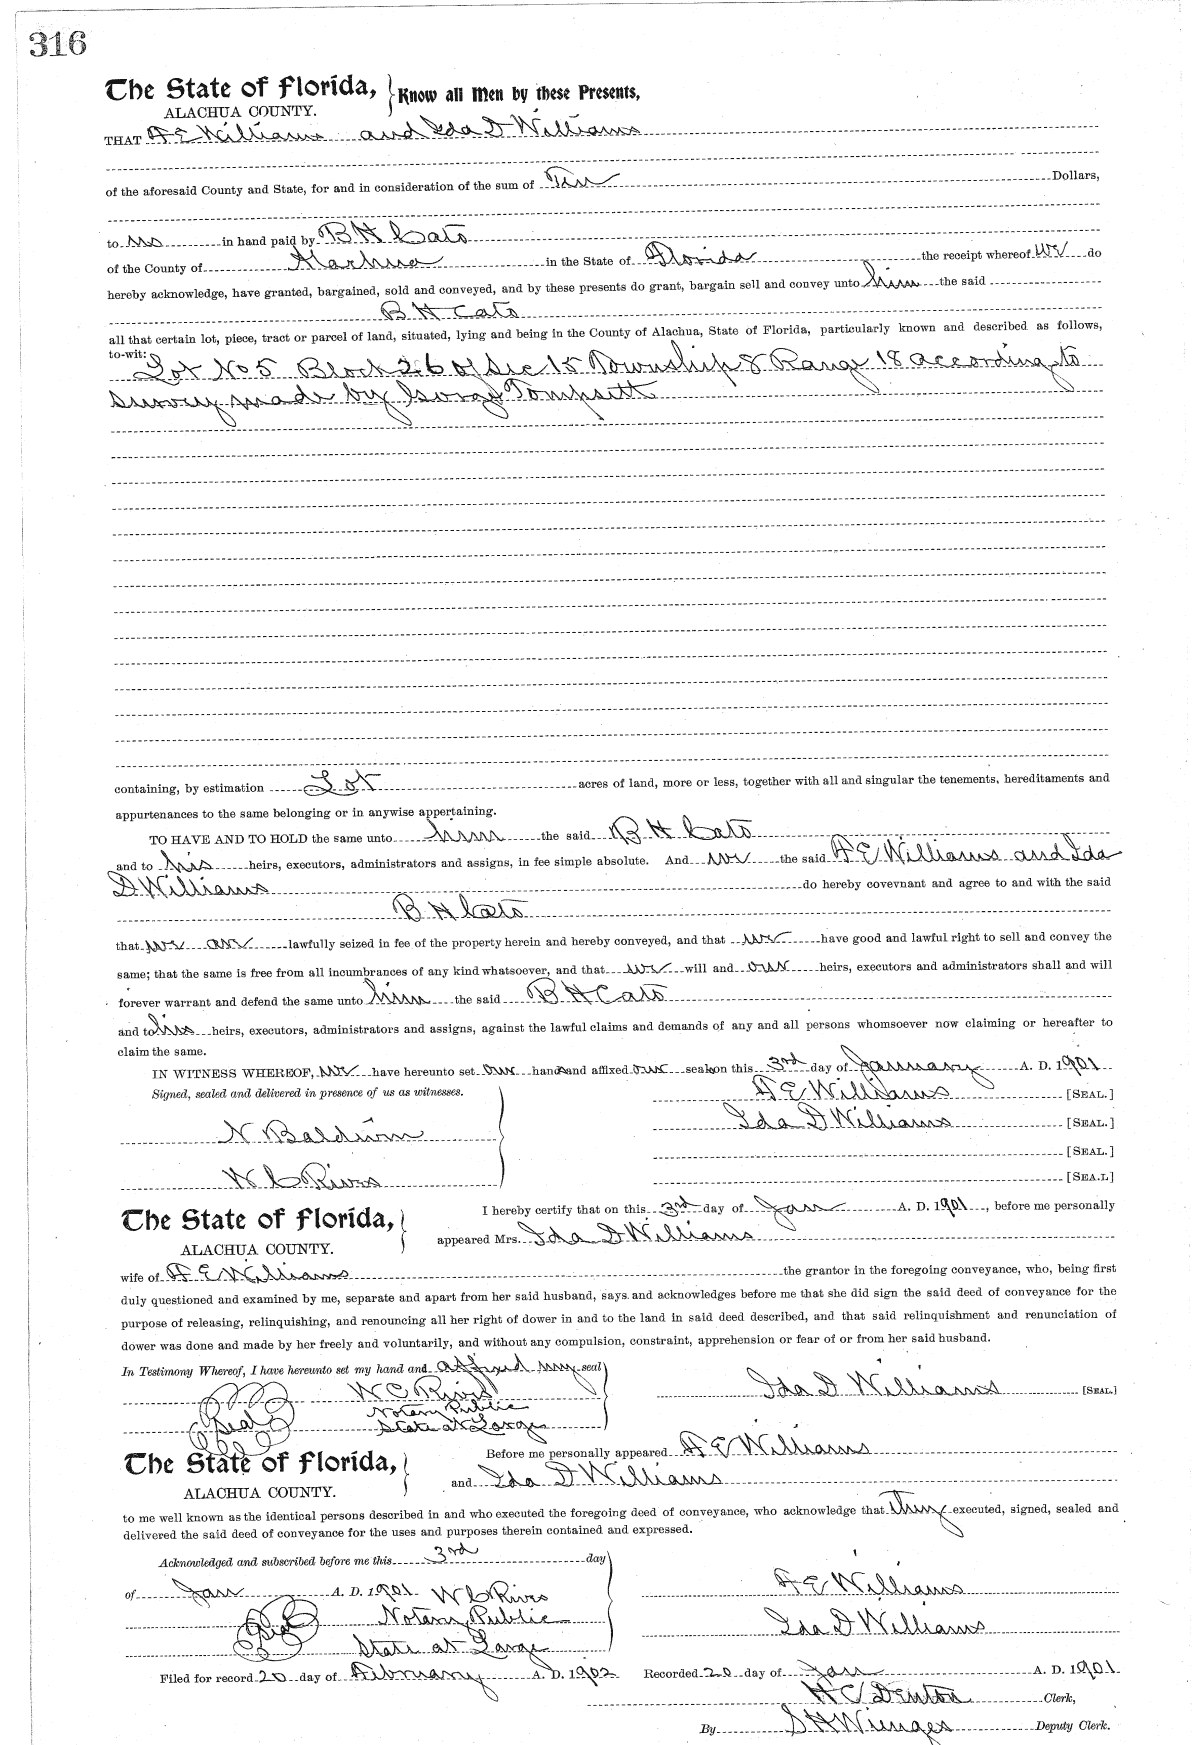 316
The State of Florida, Know all Men by these Presents,
ALACHUA COUNTY.
THAT A E Williams and Ida D Williams
of the aforesaid County and State, for and in consideration of the sum of Ten Dollars,
to us in hand paid by B H Cato
of the County of Alachua in the State of Florida the receipt whereof we do
hereby acknowledge, have granted, bargained, sold and conveyed, and by these presents do grant, bargain sell and convey unto him the said
B H Cato
all that certain lot, piece, tract or parcel of land, situated, lying and being in the County of Alachua, State of Florida, particularly known and described as follows,
to-wit:
Lot No 5 Block 26 of Sec 15 Township 8 Range 18 according to
survey made by George Tompsett
containing, by estimation Lot acres of land, more or less, together with all and singular the tenements, hereditaments and
appurtenances to the same belonging or in anywise appertaining.
TO HAVE AND TO HOLD the same unto him the said B H Cato
and to his heirs, executors, administrators and assigns, in fee simple absolute. And we the said A E Williams and Ida
D Williams do hereby covevnant and agree to and with the said
B H Cato
that we are lawfully seized in fee of the property herein and hereby conveyed, and that we have good and lawful right to sell and convey the
same; that the same is free from all incumbrances of any kind whatsoever, and that we will and our heirs, executors and administrators shall and will
forever warrant and defend the same unto him the said B H Cato
and to his heirs, executors, administrators and assigns, against the lawful claims and demands of any and all persons whomsoever now claiming or hereafter to
claim the same.
IN WITNESS WHEREOF, we have hereunto set our hands and affixed our seals on this 3rd day of January A. D. 1901
Signed, sealed and delivered in presence of us as witnesses. A E Williams [SEAL.]
Ida D Williams [SEAL.]
N Baldwin [SEAL.]
W C Rives [SEA.L]
The State of Florida, I hereby certify that on this 3rd day of Jan A. D. 1901, before me personally
ALACHUA COUNTY. appeared Mrs. Ida D Williams
wife of A E Williams the grantor in the foregoing conveyance, who, being first
duly questioned and examined by me, separate and apart from her said husband, says and acknowledges before me that she did sign the said deed of conveyance for the
purpose of releasing, relinquishing, and renouncing all her right of dower in and to the land in said deed described, and that said relinquishment and renunciation of
dower was done and made by her freely and voluntarily, and without any compulsion, constraint, apprehension or fear of or from her said husband.
In Testimony Whereof, I have hereunto set my hand and affixed my seal
W C Rives Ida D Williams [SEAL.]
Notary Public
Seal State at Large
The State of Florida, Before me personally appeared A E Williams
ALACHUA COUNTY. and Ida D Williams
to me well known as the identical persons described in and who executed the foregoing deed of conveyance, who acknowledge that They executed, signed, sealed and
delivered the said deed of conveyance for the uses and purposes therein contained and expressed.
Acknowledged and subscribed before me this 3rd day
of Jan A. D. 1901 W C Rives A E Williams
Seal Notary Public Ida D Williams
State at Large
Filed for record 20 day of February A. D. 1902 Recorded 20 day of Jan A. D. 1901
H C Denton Clerk,
By S H Wienges Deputy Clerk.